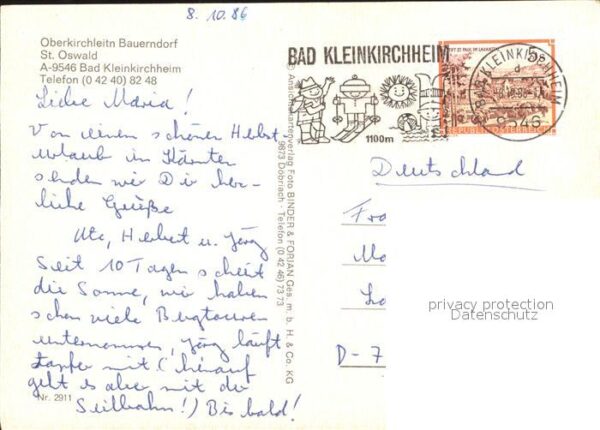 8.10.86
Oberkirchleitn Bauerndorf
St. Oswald
A-9546 Bad Kleinkirchheim
Telefon (0 42 40) 82 48
Liebe Maria!
Von einem schönen Herbst
urlaub in Kärnten
senden wir Dir herz-
liche Grüße
Ute, Herbert u. Jörg
Seit 10 Tagen scheit
die Sonne, wir haben
schon viele Bergtouren
unternommen, Jörg läuft
tapfer mit (hinauf
geht es aber mit der
Seilbahn!) Bis bald!
Nr. 2911
© Ansichtskartenverlag Foto BINDER & FORIAN Ges. m. b. H. & Co. KG
9873 Döbriach - Telefon (0 42 46) 73 73
BAD KLEINKIRCHHEIM
1100m
STIFT ST. PAUL IM LAVANTTAL
5
REPUBLIK ÖSTERREICH
BAD KLEINKIRCHHEIM
9546
Deutschland
D-7
privacy protection
Datenschutz